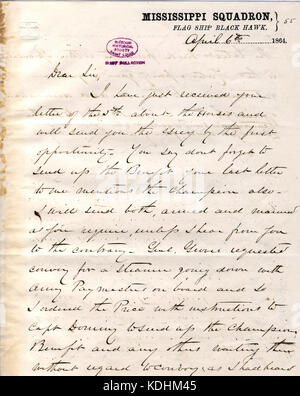 MISSISSIPPI SQUADRON,
FLAG SHIP BLACK HAWK.
55
April 6th 1864.
MISSOURI
HISTORICAL
SOCIETY
Dear Sir,
I have just received your
letter of the 5th about the Horses and
will send you the by the first
opportunity. You say don't forget to
send up the Benefit your last letter
to me mentions the Champion also
I will send both, armed and manned
as you require unless I hear from you
to the contrary. Genl. requested
convoy for a Steamer going down with
army Paymasters on board and so
I ordered the Price with instructions to
Capt to send up the Champion,
Benefit and any others waiting there
without regard to convoy, as I had heard
alamy
Image ID: KDHM45
www.alamy.com